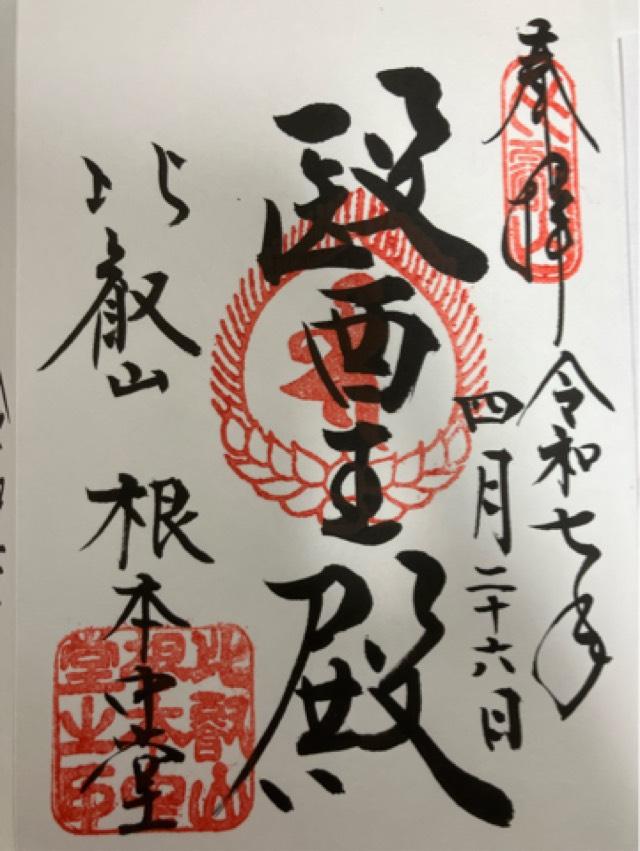 奉拝
令和七年
四月二十六日
醫王殿
比叡山 根本中堂
比叡山
根本中
堂之印